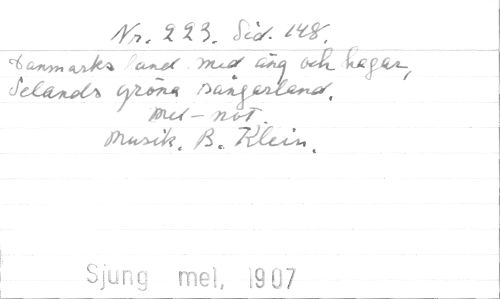 Nr. 223. Sid. 148.
Danmarks land med äng och hagar,
Selands gröna sångarland.
mel-not.
Musik. B. Klein.
Sjung mel, 1907